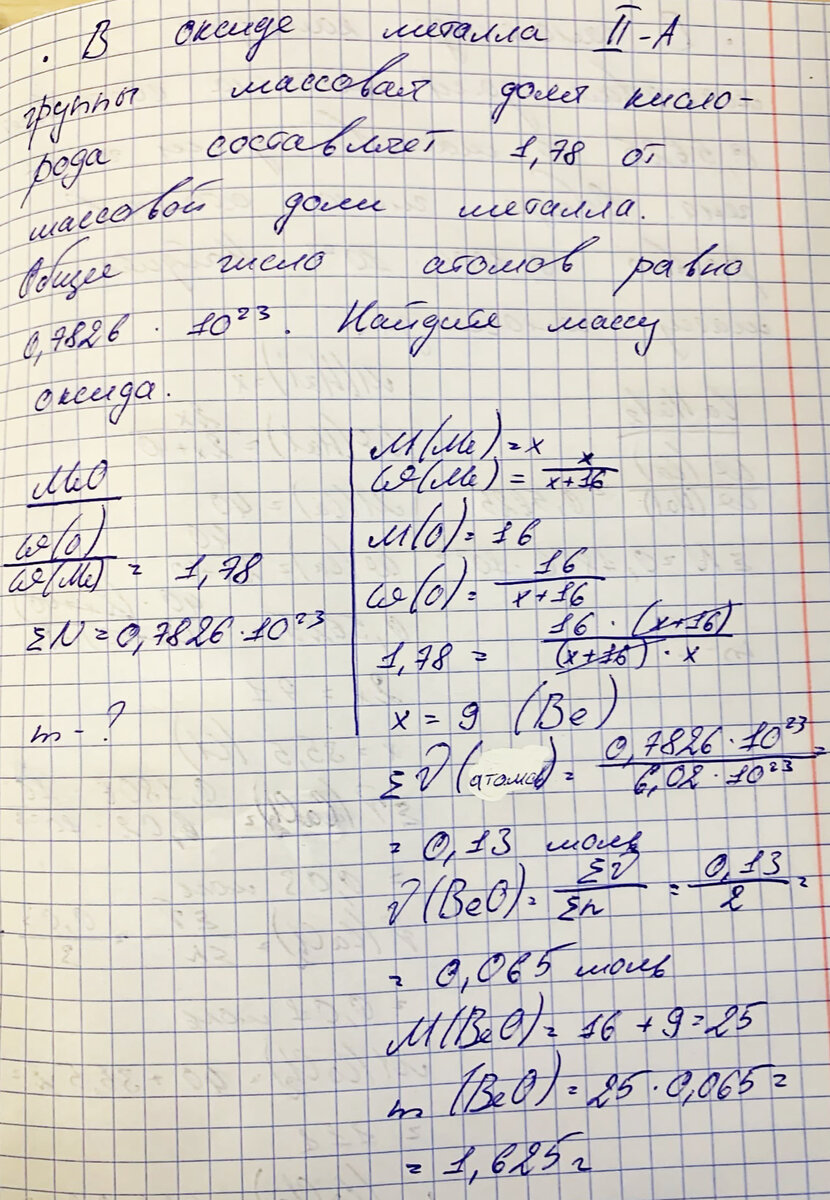 . В оксиде металла II-А
группы массовая доля кисло-
рода составляет 1,78 от
массовой доли металла.
Общее число атомов равно
0,7826 · 10²³. Найдите массу
оксида.
MeO
ω(O)/ω(Me) = 1,78
ΣN = 0,7826 · 10²³
m - ?
M(Me) = x
ω(Me) = x/(x+16)
M(O) = 16
ω(O) = 16/(x+16)
1,78 = 16 · (x+16)/(x+16) · x
x = 9 (Be)
Σν(атомов) = 0,7826 · 10²³/6,02 · 10²³ =
= 0,13 моль
ν(BeO) = Σν/Σn = 0,13/2 =
= 0,065 моль
M(BeO) = 16 + 9 = 25
m (BeO) = 25 · 0,065 =
= 1,625 г